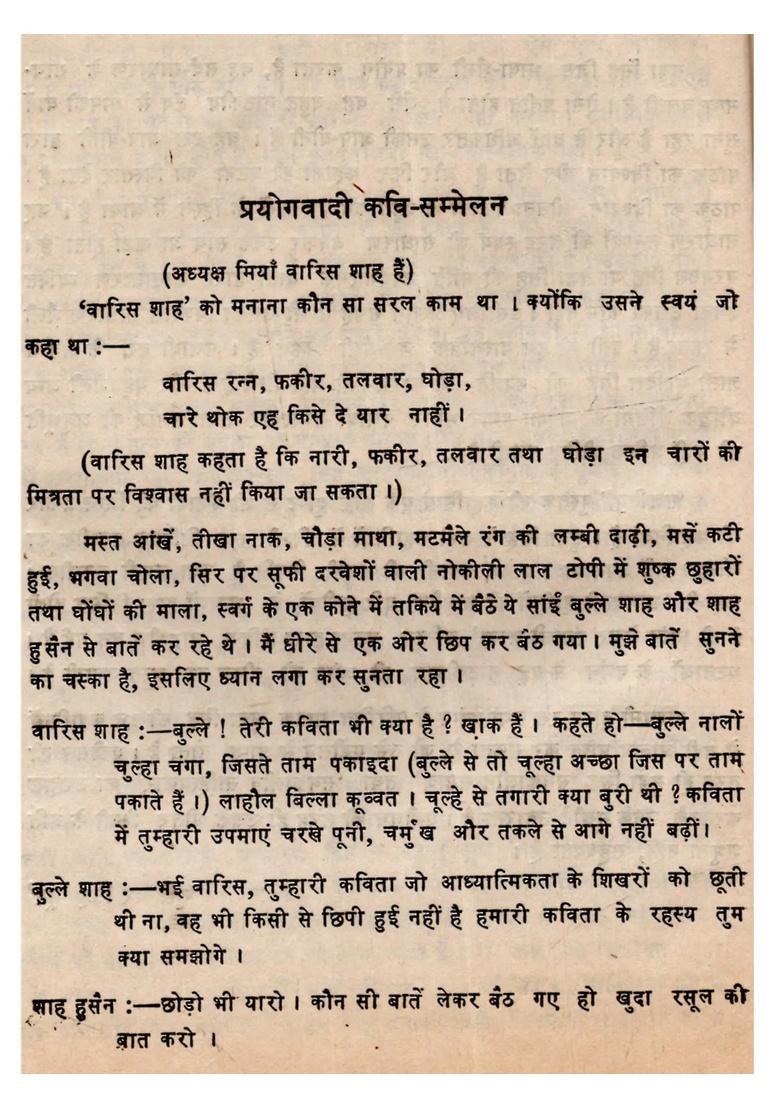 प्रयोगवादी कवि-सम्मेलन
(अध्यक्ष मियाँ वारिस शाह हैं)
‘वारिस शाह’ को मनाना कौन सा सरल काम था । क्योंकि उसने स्वयं जो
कहा था :—
वारिस रन्न, फकीर, तलवार, घोड़ा,
चारे थोक एह किसे दे यार नाहीं ।
(वारिस शाह कहता है कि नारी, फकीर, तलवार तथा घोड़ा इन चारों की
मित्रता पर विश्वास नहीं किया जा सकता ।)
मस्त आंखें, तीखा नाक, चौड़ा माथा, मटमैले रंग की लम्बी दाढ़ी, मसें कटी
हुई, भगवा चोला, सिर पर सूफी दरवेशों वाली नोकीली लाल टोपी में शुष्क छुहारों
तथा घोंघों की माला, स्वर्ग के एक कोने में तकिये में बैठे ये सांईं बुल्ले शाह और शाह
हुसैन से बातें कर रहे थे । मैं धीरे से एक ओर छिप कर बैठ गया । मुझे बातें सुनने
का चस्का है, इसलिए ध्यान लगा कर सुनता रहा ।
वारिस शाह :—बुल्ले ! तेरी कविता भी क्या है ? खा़क हैं । कहते हो—बुल्ले नालों
चुल्हा चंगा, जिसते ताम पकाइदा (बुल्ले से तो चूल्हा अच्छा जिस पर ताम
पकाते हैं ।) लाहौल बिल्ला कूव्वत । चूल्हे से तगारी क्या बुरी थी ? कविता
में तुम्हारी उपमाएं चरखे पूनी, चर्मुख और तकले से आगे नहीं बढ़ीं।
बुल्ले शाह :—भई वारिस, तुम्हारी कविता जो आध्यात्मिकता के शिखरों को छूती
थी ना, वह भी किसी से छिपी हुई नहीं है हमारी कविता के रहस्य तुम
क्या समझोगे ।
शाह हुसैन :—छोड़ो भी यारो । कौन सी बातें लेकर बैठ गए हो खुदा रसूल की
बात करो ।